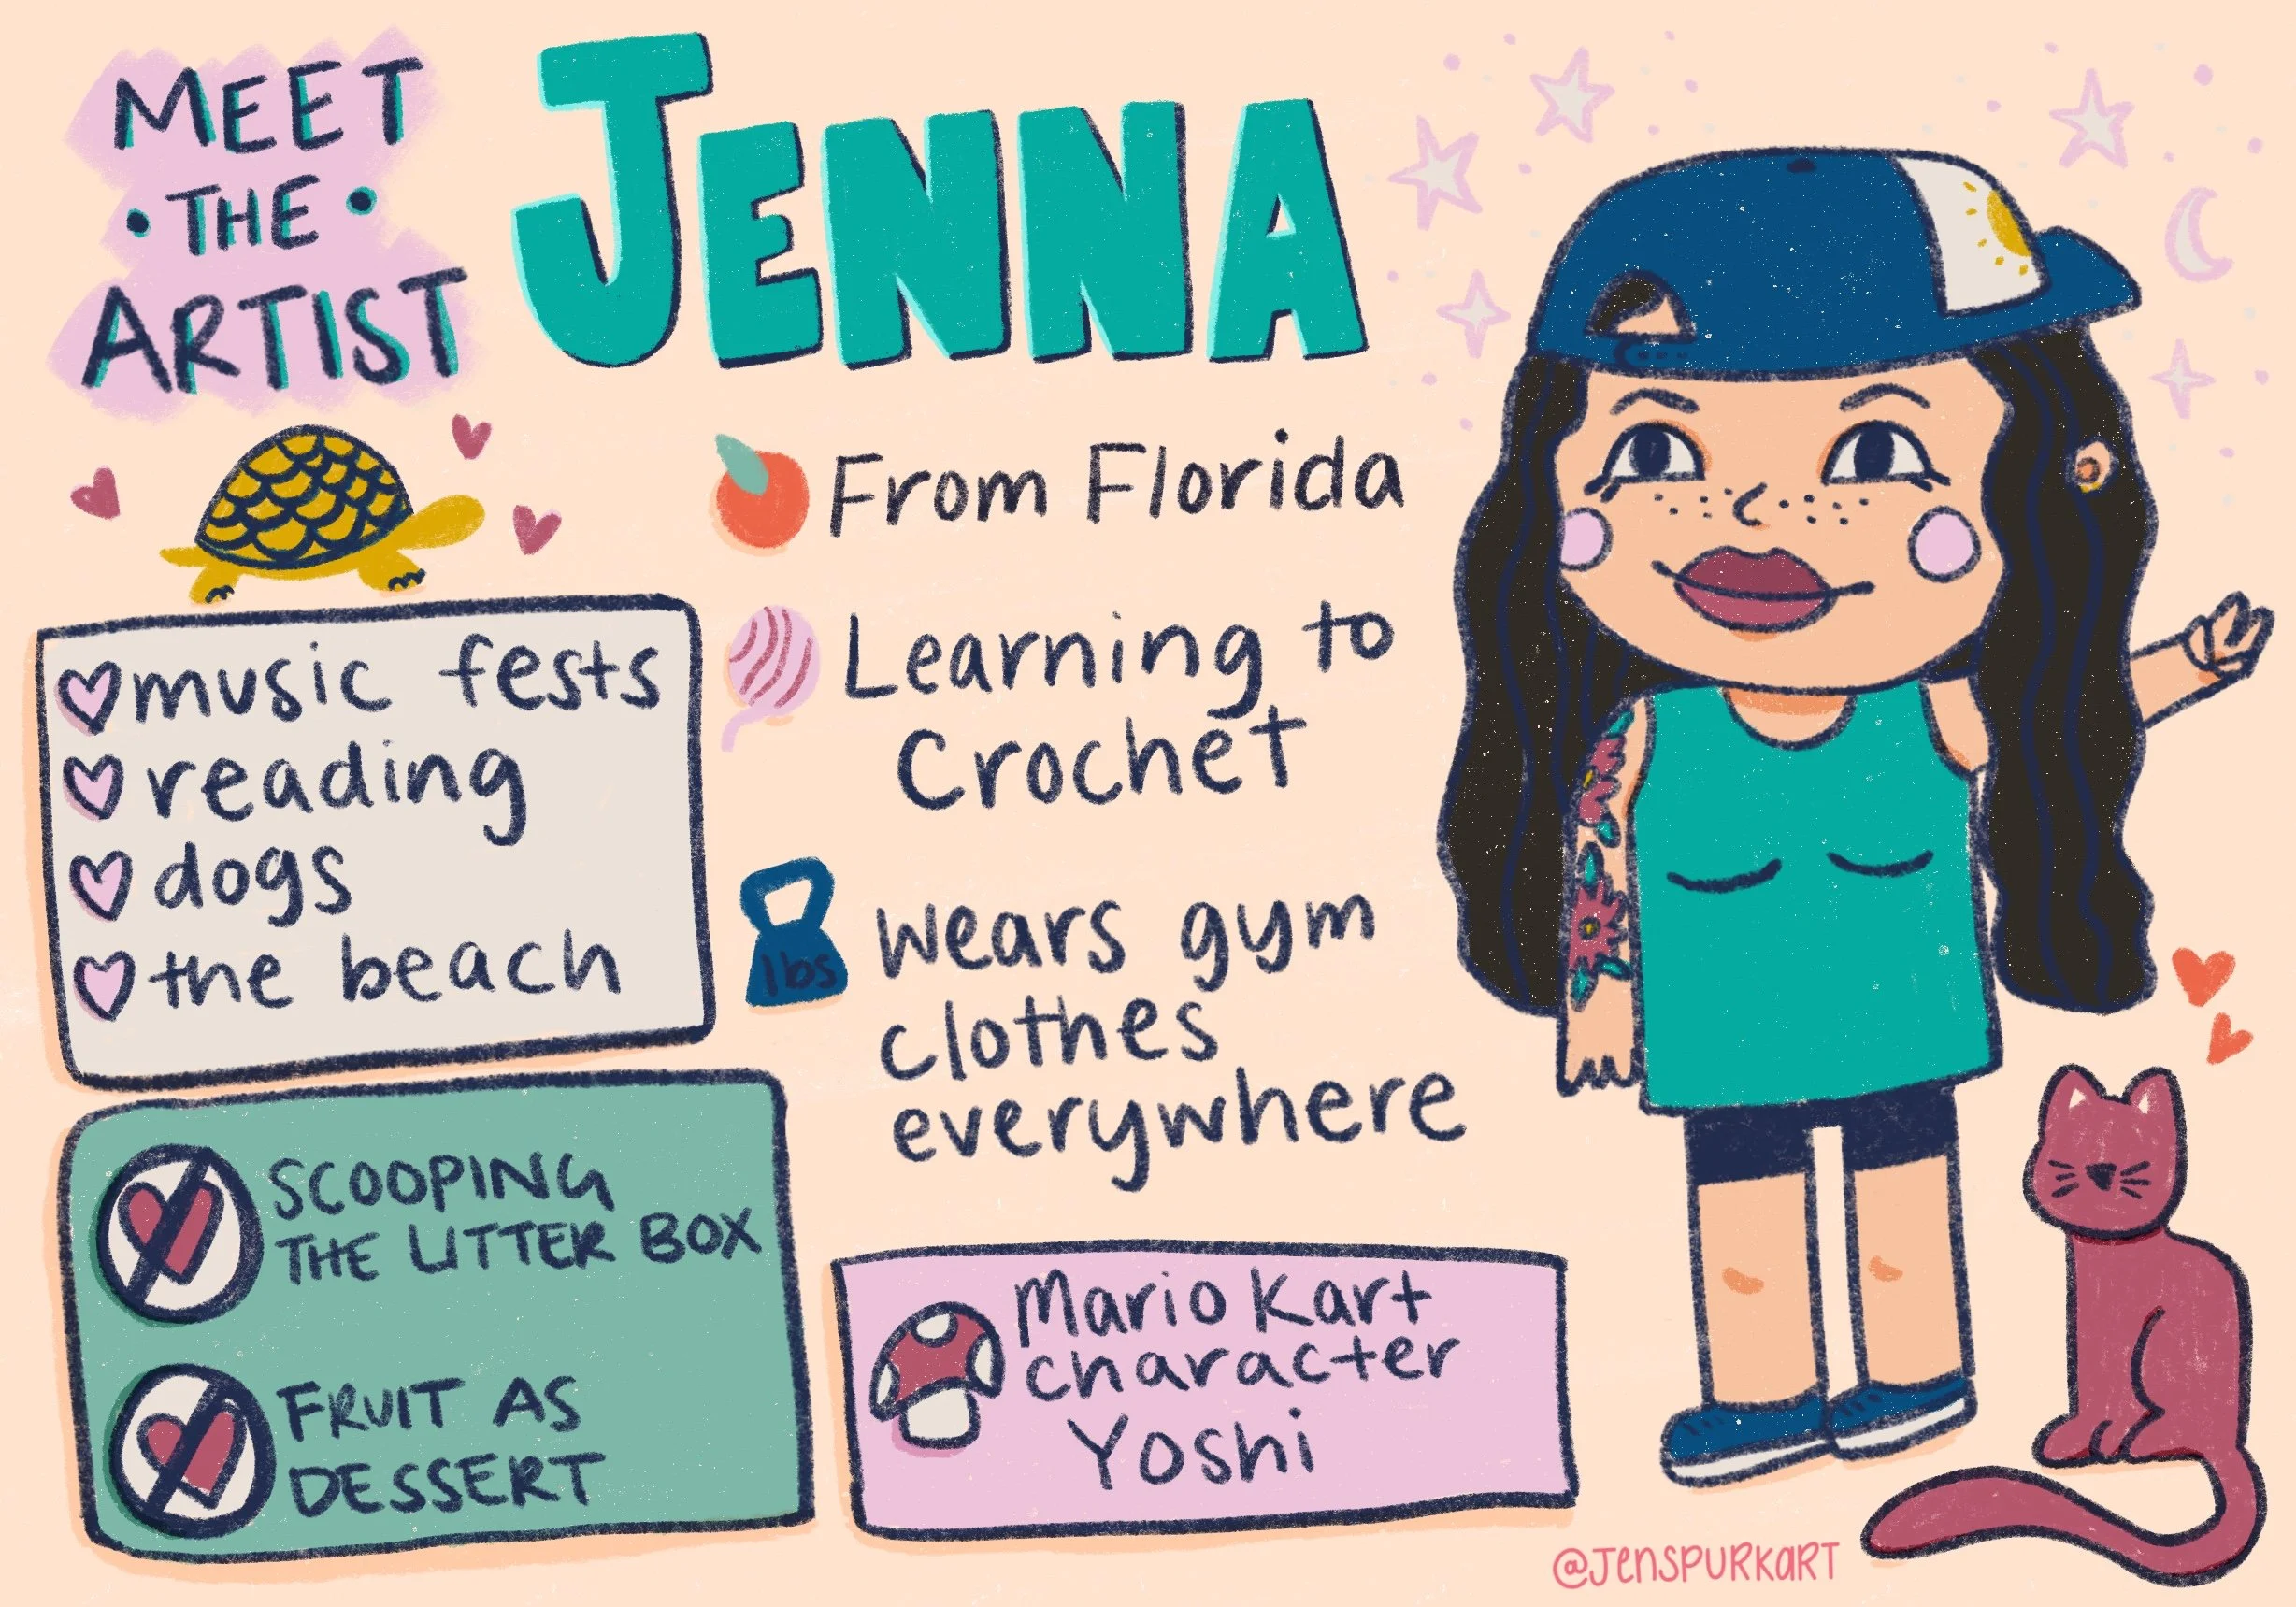 MEET
• THE •
ARTIST
JENNA
From Florida
Learning to
Crochet
lbs
wears gym
clothes
everywhere
music fests
reading
dogs
the beach
SCOOPING
THE LITTER BOX
FRUIT AS
DESSERT
Mario Kart
character
Yoshi
@JENSPURKART